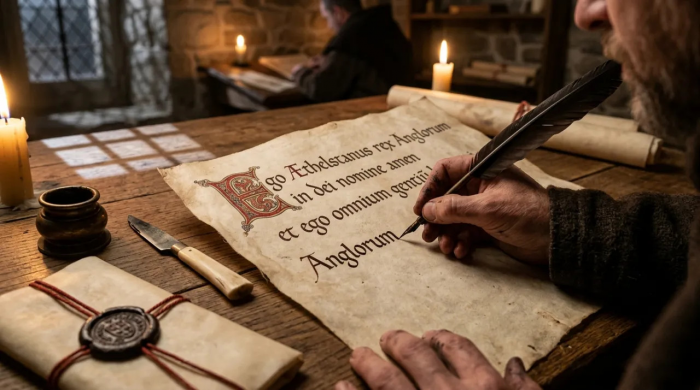 Ego Æthelstanus rex Anglorum
in dei nomine amen
et ego omnium
Anglorum